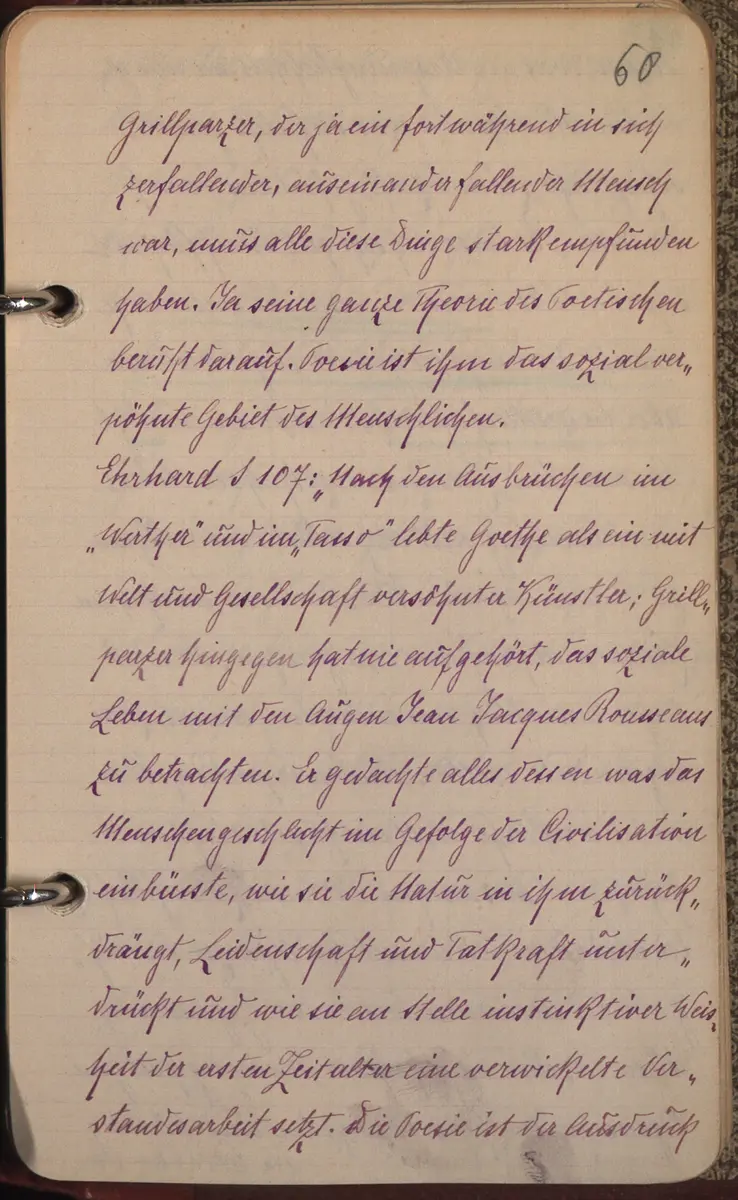 60
Grillparzer, der ja ein fortwährend in sich
zerfallender, auseinanderfallender Mensch
war, muss alle diese Dinge stark empfunden
haben. Ja seine ganze Theorie des Poetischen
beruht darauf. Poesie ist ihm das sozial ver„
pöhnte Gebiet des Menschlichen.
Ehrhard S 107: „Nach den Ausbrüchen im
„Werther" und im „Tasso" lebte Goethe als ein mit
Welt und Gesellschaft versöhnter Künstler; Grill„
parzer hingegen hat nie aufgehört, das soziale
Leben mit den Augen Jean Jacques Rousseaus
zu betrachten. Er gedachte alles dessen was das
Menschengeschlecht im Gefolge der Civilisation
einbüsste, wie sie die Natur in ihm zurück„
drängt, Leidenschaft und Tatkraft unter„
drückt und wie sie an Stelle instinktiver Weis„
heit der ersten Zeitalter eine verwickelte Ver„
standesarbeit setzt. Die Poesie ist der Ausdruck